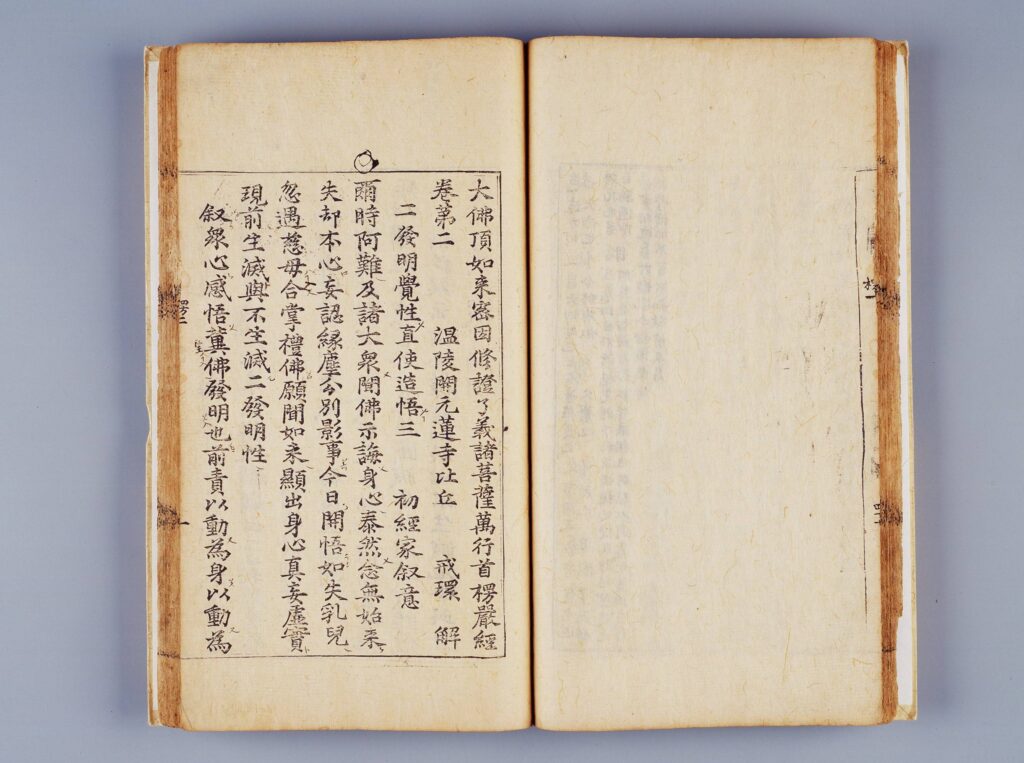 大佛頂如来密因修證了義諸菩薩萬行首楞嚴經
卷第二　温陵開元蓮寺比丘　戒環　解
二發明覺性直使造悟三　初經家叙意
爾時阿難及諸大衆聞佛示誨身心泰然念無始来
失却本心妄認緣塵分別影事今日開悟如失乳兒
忽遇慈母合掌禮佛願聞如来顯出身心真妄虛實
現前生滅與不生滅二發明性
叙衆心感悟冀佛發明也前責以動為身以動為